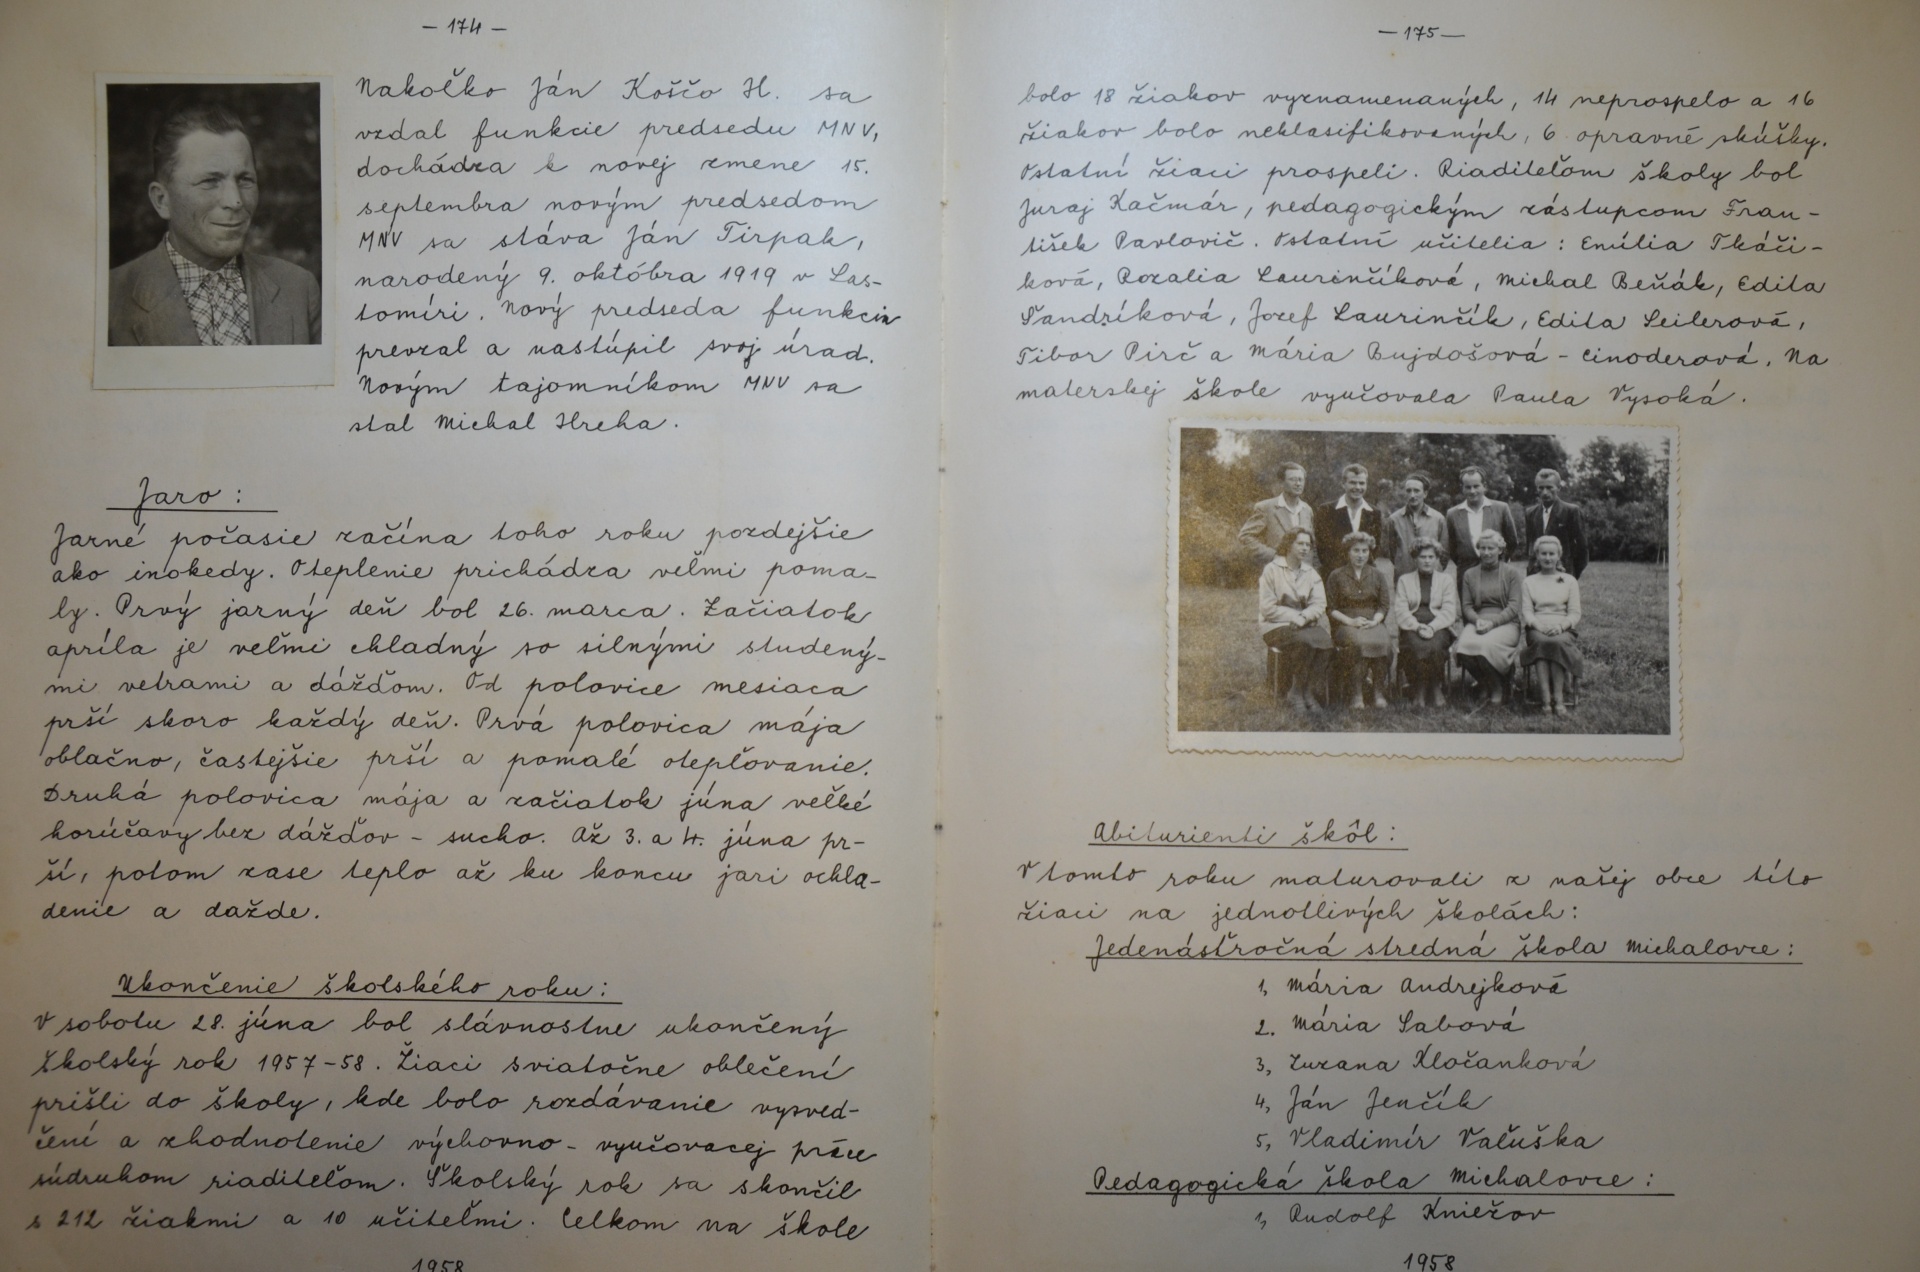 — 174 —
Nakoľko Ján Koščo H. sa
vzdal funkcie predsedu MNV,
dochádza k novej zmene 15.
septembra novým predsedom
MNV sa stáva Ján Tirpak,
narodený 9. októbra 1919 v Las-
tomíri. Nový predseda funkciu
prevzal a nastúpil svoj úrad.
Novým tajomníkom MNV sa
stal Michal Hreha.
Jaro :
Jarné počasie začína toho roku pozdejšie
ako inokedy. Oteplenie prichádza veľmi poma-
ly. Prvý jarný deň bol 26. marca. Začiatok
apríla je veľmi chladný so silnými studený-
mi vetrami a dážďom. Od polovice mesiaca
prší skoro každý deň. Prvá polovica mája
oblačno, častejšie prší a pomalé otepľovanie.
Druhá polovica mája a začiatok júna veľké
horúčavy bez dážďov – sucho. Až 3. a 4. júna pr-
ší, potom zase teplo až ku koncu jari ochla-
denie a dažde.
Ukončenie školského roku :
V sobotu 28. júna bol slávnostne ukončený
školský rok 1957-58. Žiaci sviatočne oblečení
prišli do školy, kde bolo rozdávanie vysved-
čení a zhodnotenie výchovno – vyučovacej práce
súdruhom riaditeľom. Školský rok sa skončil
s 212 žiakmi a 10 učiteľmi. Celkom na škole
1958
— 175 —
bolo 18 žiakov vyznamenaných, 14 neprospelo a 16
žiakov bolo neklasifikovaných, 6 opravné skúšky.
Ostatní žiaci prospeli. Riaditeľom školy bol
Juraj Kačmár, pedagogickým zástupcom Fran-
tišek Pavlovič. Ostatní učitelia : Emília Tkáči-
ková, Rozalia Laurinčíková, Michal Beňák, Edita
Šandríková, Jozef Laurinčík, Edita Seilerová,
Tibor Pirč a Mária Bujdošová – Cinoderová. Na
materskej škole vyučovala Paula Vysoká.
Abiturienti škôl :
V tomto roku maturovali z našej obce títo
žiaci na jednotlivých školách :
Jedenásťročná stredná škola Michalovce :
1, Mária Andrejková
2. Mária Sabová
3, Zuzana Kločanková
4, Ján Jenčík
5, Vladimír Vaľuška
Pedagogická škola Michalovce :
1, Rudolf Kniežov
1958